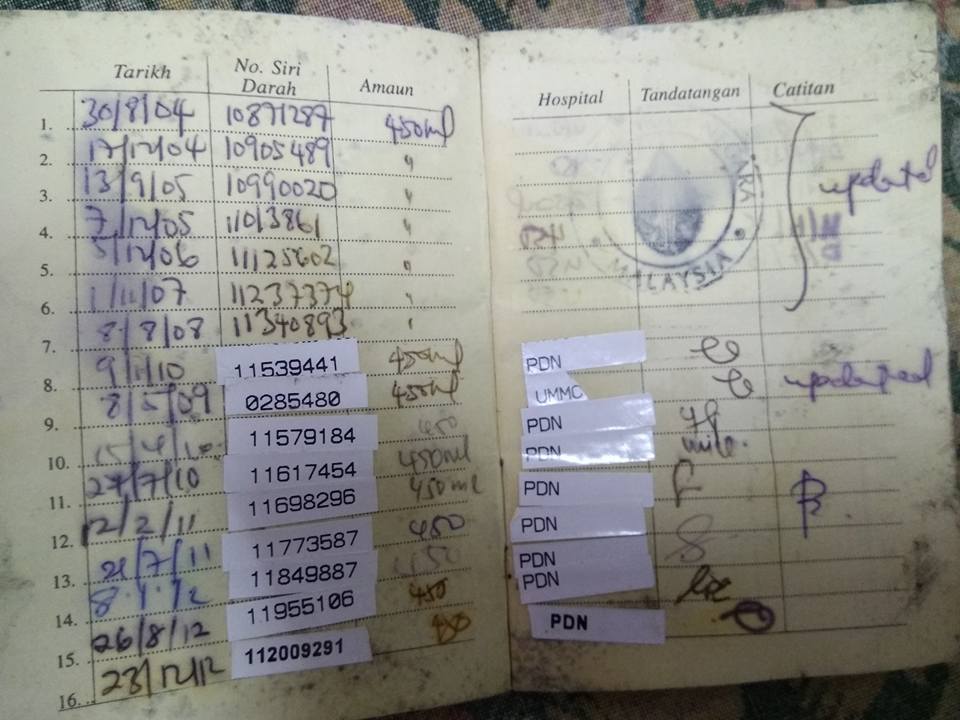 Tarikh No. Siri Darah Amaun Hospital Tandatangan Catitan
1. 30/8/04 10871287 450ml
2. 17/12/04 10905489 "
3. 13/9/05 10990020 "
4. 7/12/05 11013861 "
5. 5/12/06 11125602 "
6. 1/11/07 "
7. 8/8/08 11340893 "
8. 9/1/10 11539441 450ml PDN
9. 8/5/09 0285480 450ml UMMC
10. 11579184 450 PDN
11. 27/7/10 11617454 450ml PDN
12. 12/2/11 11698296 450ml PDN
13. 21/7/11 11773587 450 PDN
14. 8.1.12 11849887 PDN
15. 26/8/12 11955106 450 PDN
16. 23/12/12 112009291 450 PDN
updated
MALAYSIA